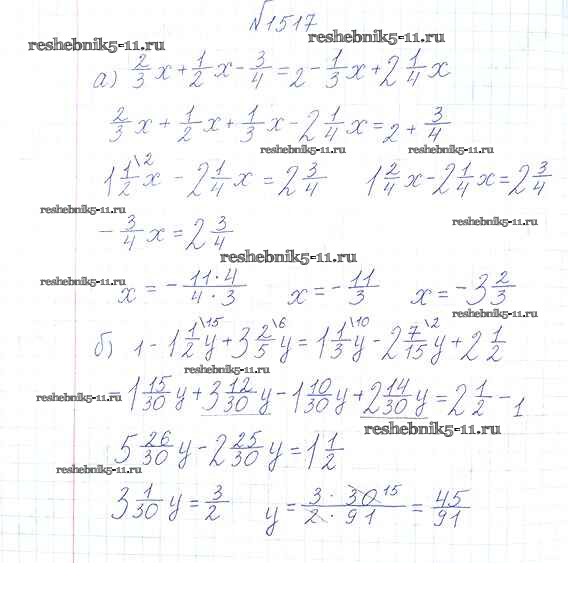 №1517
reshebnik5-11.ru reshebnik5-11.ru
а) 2/3 x + 1/2 x - 3/4 = 2 - 1/3 x + 2 1/4 x
2/3 x + 1/2 x + 1/3 x - 2 1/4 x = 2 + 3/4
reshebnik5-11.ru reshebnik5-11.ru
1 1/2\2 x - 2 1/4 x = 2 3/4 1 2/4 x - 2 1/4 x = 2 3/4
reshebnik5-11.ru reshebnik5-11.ru
- 3/4 x = 2 3/4
reshebnik5-11.ru
reshebnik5-11.ru
x = - 11·4/4·3 x = - 11/3 x = -3 2/3
reshebnik5-11.ru
б) 1 - 1 1/2\15 y + 3 2/5\6 y = 1 1/3\10 y - 2 7/15\2 y + 2 1/2
reshebnik5-11.ru
= 1 15/30 y + 3 12/30 y - 1 10/30 y + 2 14/30 y = 2 1/2 - 1
reshebnik5-11.ru
reshebnik5-11.ru
5 26/30 y - 2 25/30 y = 1 1/2
reshebnik5-11.ru
3 1/30 y = 3/2 y = 3·30 15/2·91 = 45/91